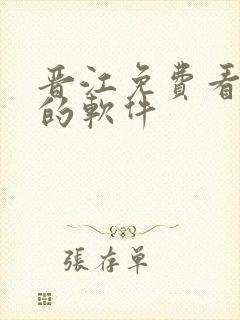 晋江免費看
的軟件
張存单